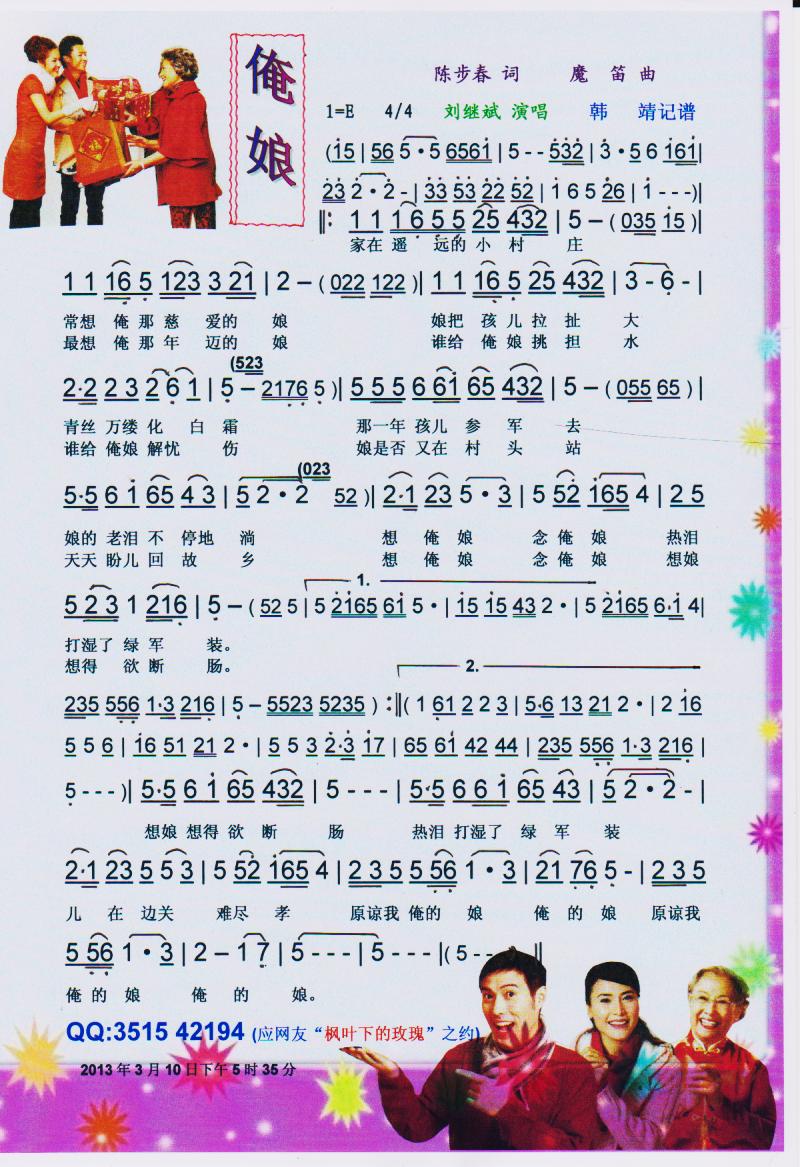 俺娘
陈步春 词 魔 笛 曲
1=E 4/4 刘继斌 演唱 韩 靖记谱
(15 | 56 5·5 6561 | 5 - - 532 | 3·5 6 161 |
23 2·2 - | 33 53 22 52 | 1 6 5 26 | 1 - - -)|
‖: 1 1 16 5 5 25 432 | 5 – ( 035 15 ) |
家在 遥 远的 小 村 庄
1 1 16 5 123 3 21 | 2 – ( 022 122 )| 1 1 16 5 25 432 | 3 - 6 - |
常想 俺 那 慈 爱的 娘 娘把 孩 儿 拉 扯 大
最想 俺 那 年 迈的 娘 谁给 俺 娘 挑 担 水
(523
2·2 2 3 2 6 1 | 5 – 2176 5 )| 5 5 5 6 61 65 432 | 5 – ( 055 65 ) |
青丝 万缕 化 白 霜 那一年 孩儿 参 军 去
谁给 俺娘 解忧 伤 娘是否 又在 村 头 站
(023
5·5 6 1 65 4 3 | 5 2 · 2 52 )| 2·1 23 5·3 | 5 52 165 4 | 2 5
娘的 老泪 不 停地 淌 想 俺 娘 念 俺 娘 热泪
天天 盼儿 回 故 乡 想 俺 娘 念 俺 娘 想娘
1.
5 2 3 1 216 | 5 – ( 52 5 | 5 2165 61 5· | 15 15 43 2· | 5 2165 6·1 4|
打湿了 绿 军 装。
想得 欲断 肠。
2.
235 556 1·3 216 | 5 – 5523 5235 ) :‖( 1 61 2 2 3 | 5·6 13 21 2· | 2 16
5 5 6 | 16 51 21 2· | 5 5 3 2·3 17 | 65 61 42 44 | 235 556 1·3 216 |
5 - - - )| 5·5 6 1 65 432 | 5 - - - | 5·5 6 61 65 43 | 5 2·2 - |
想娘 想得 欲 断 肠 热泪 打湿了 绿 军 装
2·1 23 5 5 3 | 5 52 165 4 | 2 3 5 5 56 1·3 | 21 76 5 - | 2 3 5
儿 在 边关 难尽 孝 原谅我 俺的 娘 俺 的 娘 原谅我
5 56 1·3 | 2 – 1 7 | 5 - - - | 5 - - - |( 5 - - - ‖
俺 的 娘 俺 的 娘。
QQ:3515 42194 (应网友“枫叶下的玫瑰”之约)
2013 年 3 月 10 日下午 5 时 35 分